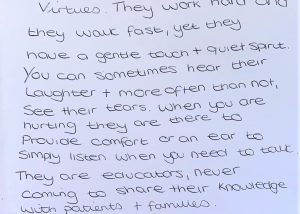 Virtues. They work hard and
they walk fast, yet they
have a gentle touch + quiet spirit.
You can sometimes hear their
Laughter + more often than not,
See their tears. When you are
hurting they are there to
Provide comfort or an ear to
Simply listen when you need to talk.
They are educators, never
coming to share their knowledge
with patients + families.